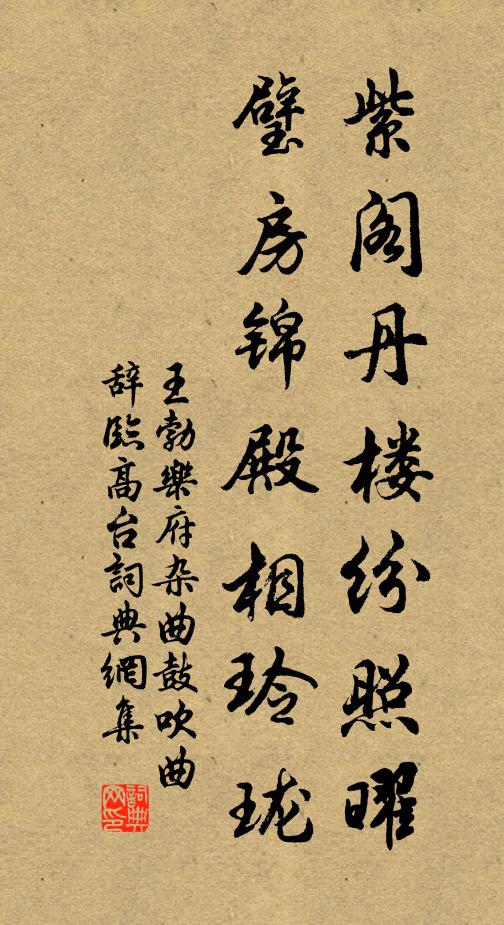 紫阁丹楼纷照曜
璧房锦殿相玲珑
王勃樂府杂曲鼓吹曲
辞臨高台詞典網集
詞典网印